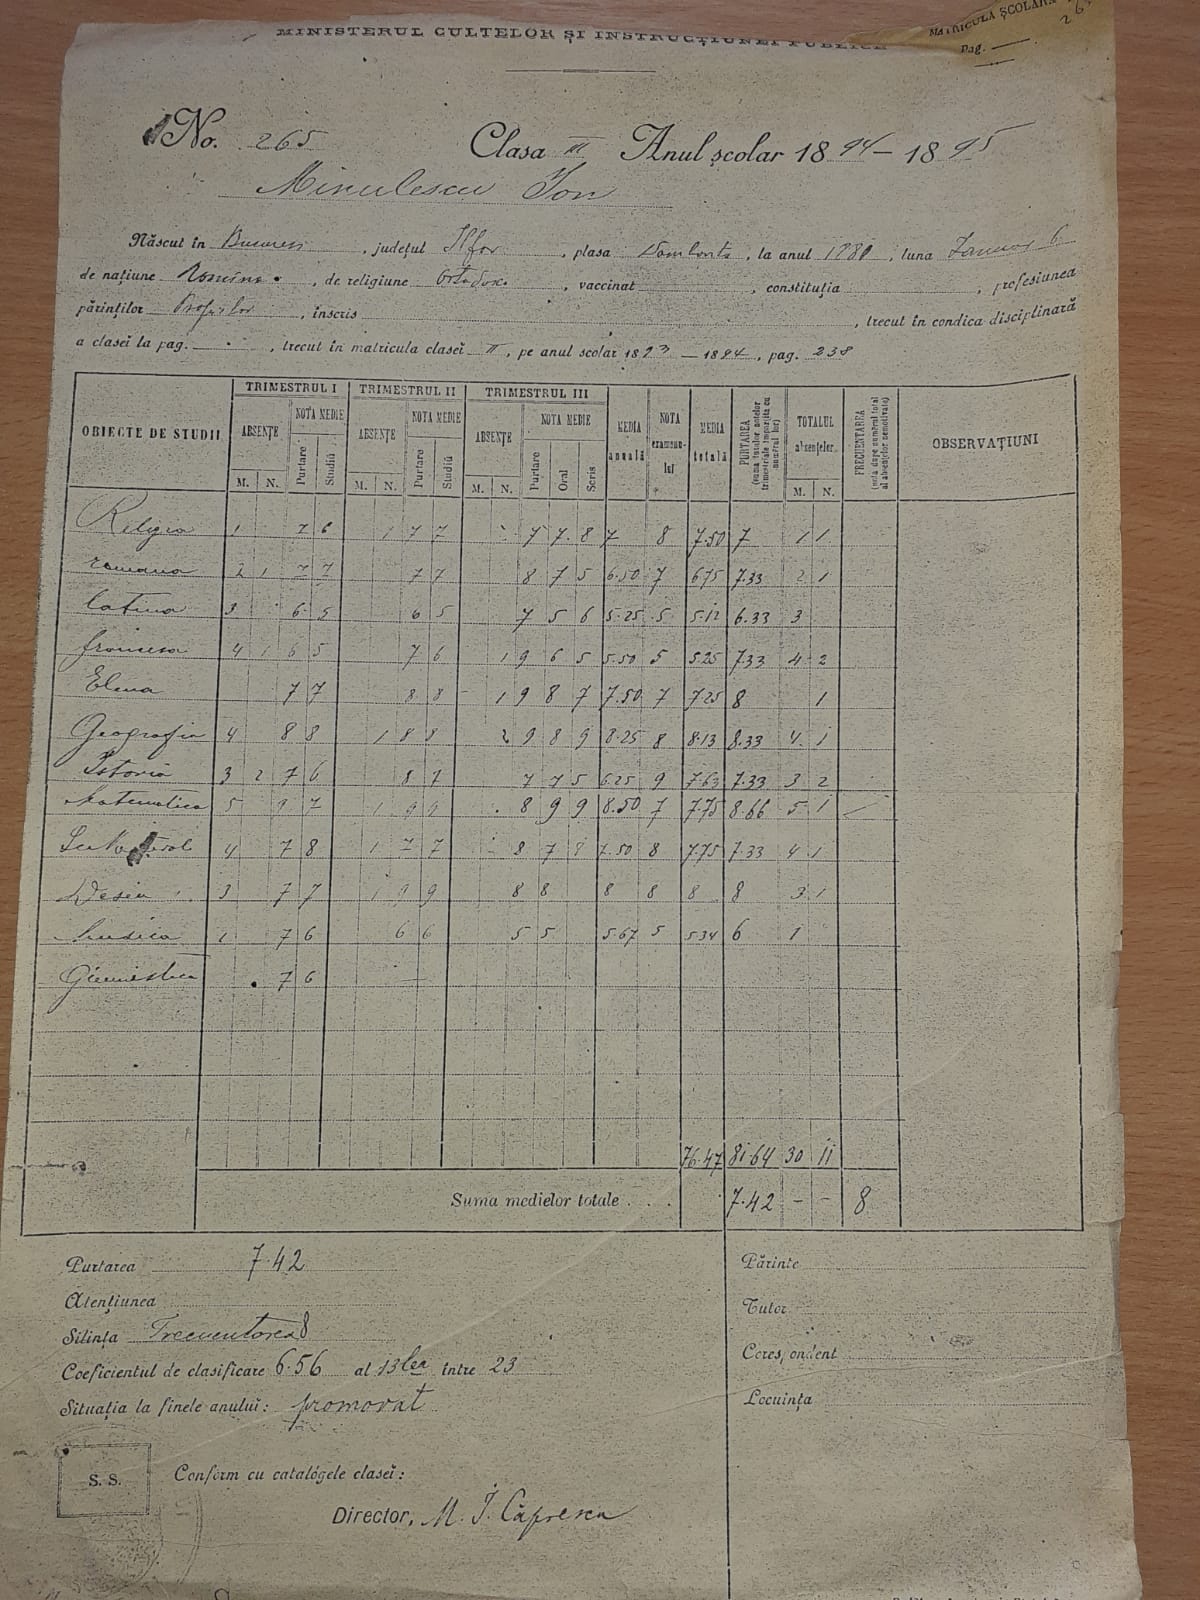 MINISTERUL CULTELOR ȘI INSTRUCȚIUNEI PUBLICE
MATRICULA ȘCOLARĂ
Pag.
No. 265 Clasa III Anul școlar 1894–1895
Minulescu Ion
Născut în București, județul Ilfov, plasa, la anul 1880, luna 6
de națiune, de religiune Ortodox, vaccinat, constituția, profesiunea
părinților, înscris, trecut în condica disciplinară
a clasei la pag., trecut în matricula clasei II, pe anul școlar 1893–1894, pag. 238
OBIECTE DE STUDII TRIMESTRUL I TRIMESTRUL II TRIMESTRUL III MEDIA anuală NOTA examenului MEDIA totală PURTAREA (suma totalurilor notelor trimestriale împărțita cu numărul lor) TOTALUL absențelor FRECUENTAREA (nota dupe numărul total al absențelor nemotivate) OBSERVAȚIUNI
ABSENȚE NOTA MEDIE ABSENȚE NOTA MEDIE ABSENȚE NOTA MEDIE
M. N. Purtare Studiŭ M. N. Purtare Studiŭ M. N. Purtare Oral Scris M. N.
Religia 1 7 6 1 7 7 7 7 8 7 8 7.50 7 1 1
romana 2 1 7 7 7 7 8 7 5 6.50 7 6.75 7.33 2 1
latina 3 6 5 6 5 7 5 6 5.25 5 5.12 6.33 3
francesa 4 1 6 5 7 6 1 9 6 5 5.50 5 5.25 7.33 4 2
Elena 7 7 8 8 1 9 8 7 7.50 7 7.25 8 1
Geografia 4 8 8 1 8 8 2 9 8 9 8.25 8 8.13 8.33 4 1
Istoria 3 2 7 6 8 7 7 7 5 6.25 9 7.63 7.33 3 2
Matematica 5 9 7 1 9 9 8 9 9 8.50 7 7.75 8.66 5 1
4 7 8 1 7 7 8 7 8 7.50 8 7.75 7.33 4 1
Desen 3 7 7 1 9 9 8 8 8 8 8 8 3 1
Musica 1 7 6 6 6 5 5 5.67 5 5.34 6 1
Gimnastica 7 6
76.47 81.64 30 11
Suma medielor totale . . . . 7.42 – – 8
Purtarea 7.42
Atențiunea
Silința Frecuentarea 8
Coeficientul de clasificare 6.56 al 13lea între 23
Situația la finele anului: promovat
S. S.
Conform cu catalógele clasei:
Director, M. I. Căprescu
Părinte
Tutor
Corespondent
Locuința